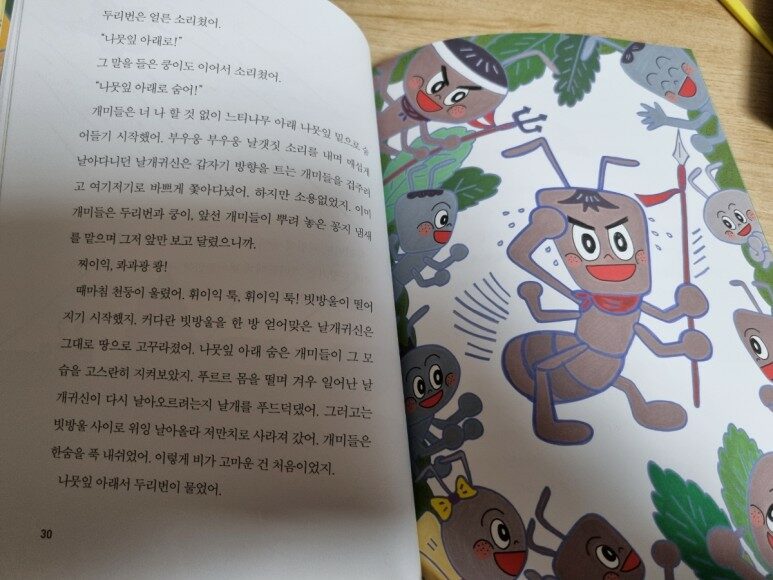 두리번은 얼른 소리쳤어.
"나뭇잎 아래로!"
그 말을 들은 쿵이도 이어서 소리쳤어.
"나뭇잎 아래로 숨어!"
개미들은 너 나 할 것 없이 느티나무 아래 나뭇잎 밑으로 숨
어들기 시작했어. 부우웅 부우웅 날갯짓 소리를 내며 매섭게
날아다니던 날개귀신은 갑자기 방향을 트는 개미들을 겁주려
고 여기저기로 바쁘게 쫓아다녔어. 하지만 소용없었지. 이미
개미들은 두리번과 쿵이, 앞선 개미들이 뿌려 놓은 꽁지 냄새
를 맡으며 그저 앞만 보고 달렸으니까.
찌이익, 콰과광 쾅!
때마침 천둥이 울렸어. 휘이익 툭, 휘이익 툭! 빗방울이 떨어
지기 시작했지. 커다란 빗방울을 한 방 얻어맞은 날개귀신은
그대로 땅으로 고꾸라졌어. 나뭇잎 아래 숨은 개미들이 그 모
습을 고스란히 지켜보았지. 푸르르 몸을 떨며 겨우 일어난 날
개귀신이 다시 날아오르려는지 날개를 푸드덕댔어. 그러고는
빗방울 사이로 위잉 날아올라 저만치로 사라져 갔어. 개미들은
한숨을 푹 내쉬었어. 이렇게 비가 고마운 건 처음이었지.
나뭇잎 아래서 두리번이 물었어.
30